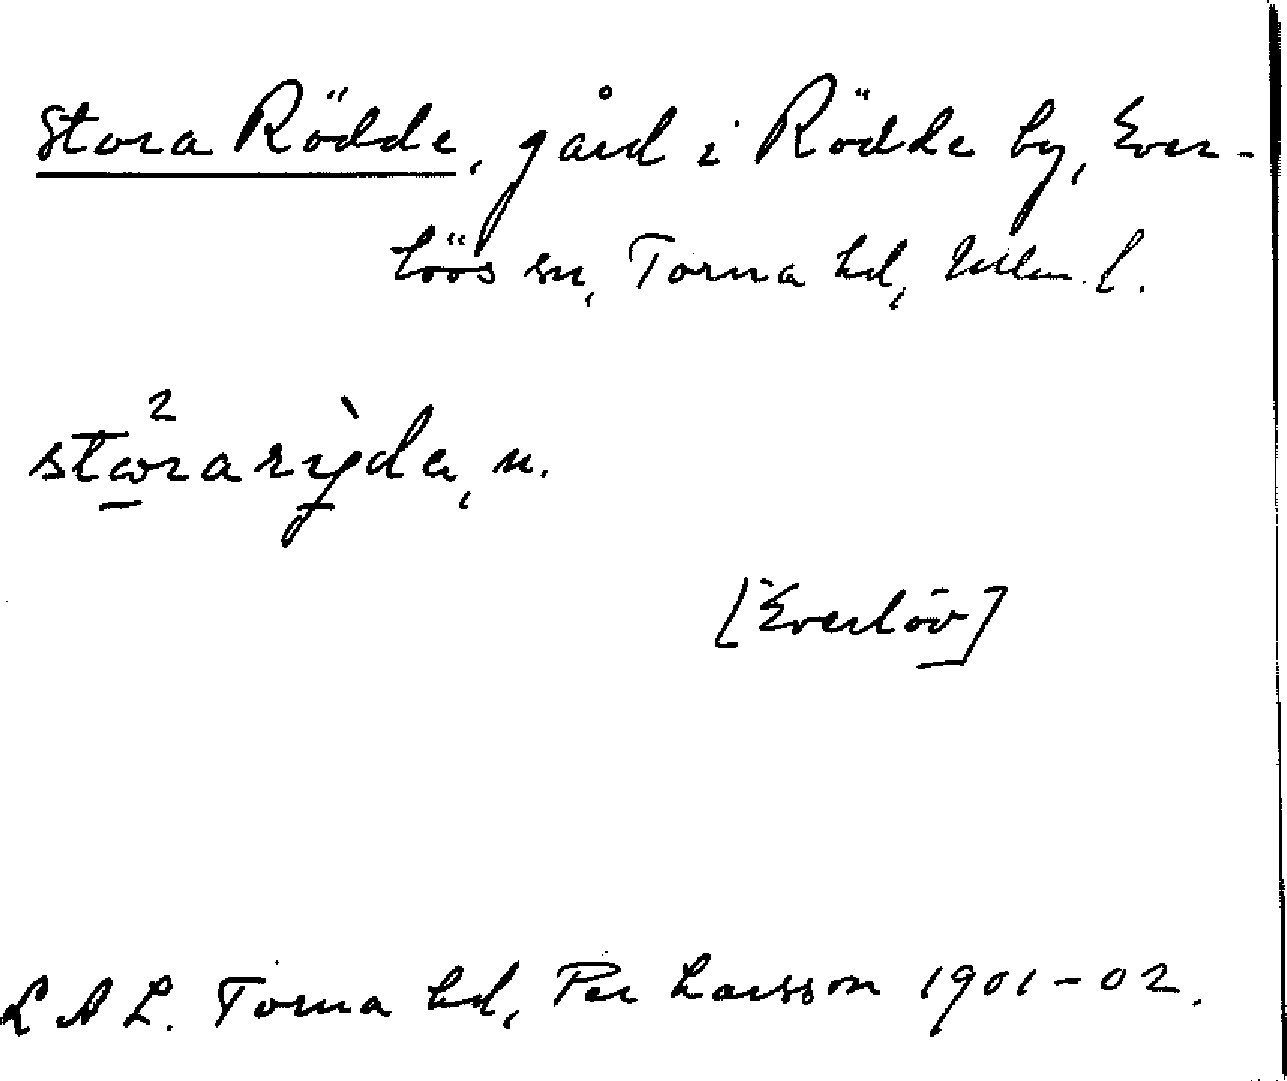 Stora Rödde, gård i Rödde by, Ever-
löös sn, Torna hd, Mlm. l.
[Everlöv]
L A L. Torna hd, Per Larsson 1901-02.